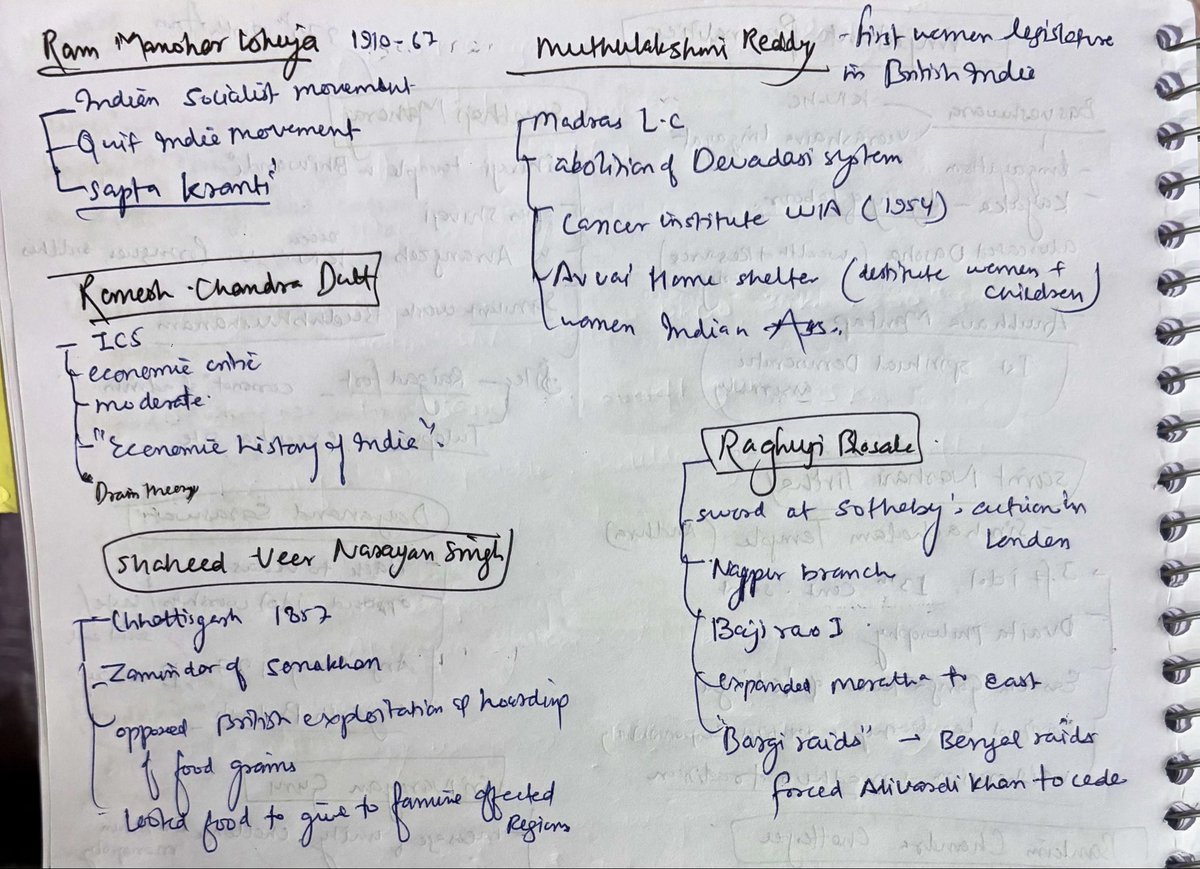 Ram Manohar Lohiya 1910-67
Indian Socialist movement
Quit India Movement
Sapta Kranti
Ramesh Chandra Dutt
ICS
economic critic
moderate
"Economic History of India".
Drain theory
Shaheed Veer Narayan Singh
Chhattisgarh 1857
Zamindar of Sonakhan
opposed British exploitation & hoarding
of food grains
looted food to give to famine affected
Regions
Muthulakshmi Reddy - first women legislature
in British India
Madras L.C
abolition of Devadasi system
Cancer institute WIA (1954)
Avvai Home shelter (destitute women +
children)
women Indian Ass.
Raghuji Bhosale
sword at Sotheby's auction in
London
Nagpur branch
Baji rao I
expanded maratha to east
"Bargi raids" → Bengal raids
forced Alivardi Khan to cede